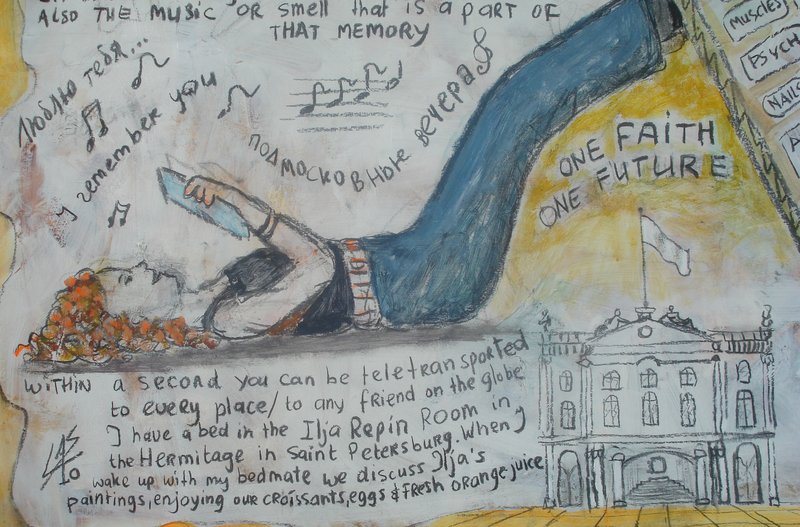 ALSO THE MUSIC OR smell that is a part OF
THAT MEMORY
Люблю тебя...
I remember you
ПОДМОСКОВНЫЕ вечера
ONE FAITH
ONE FUTURE
MUSCLES
PSYCH
NAILS
WITHIN a second you can be teletransported
to every place/to any friend on the globe
I have a bed in the Ilja Repin Room in
the Hermitage in Saint Petersburg. When I
wake up with my bedmate we discuss Ilja's
paintings, enjoying our croissants, eggs & fresh orange juice